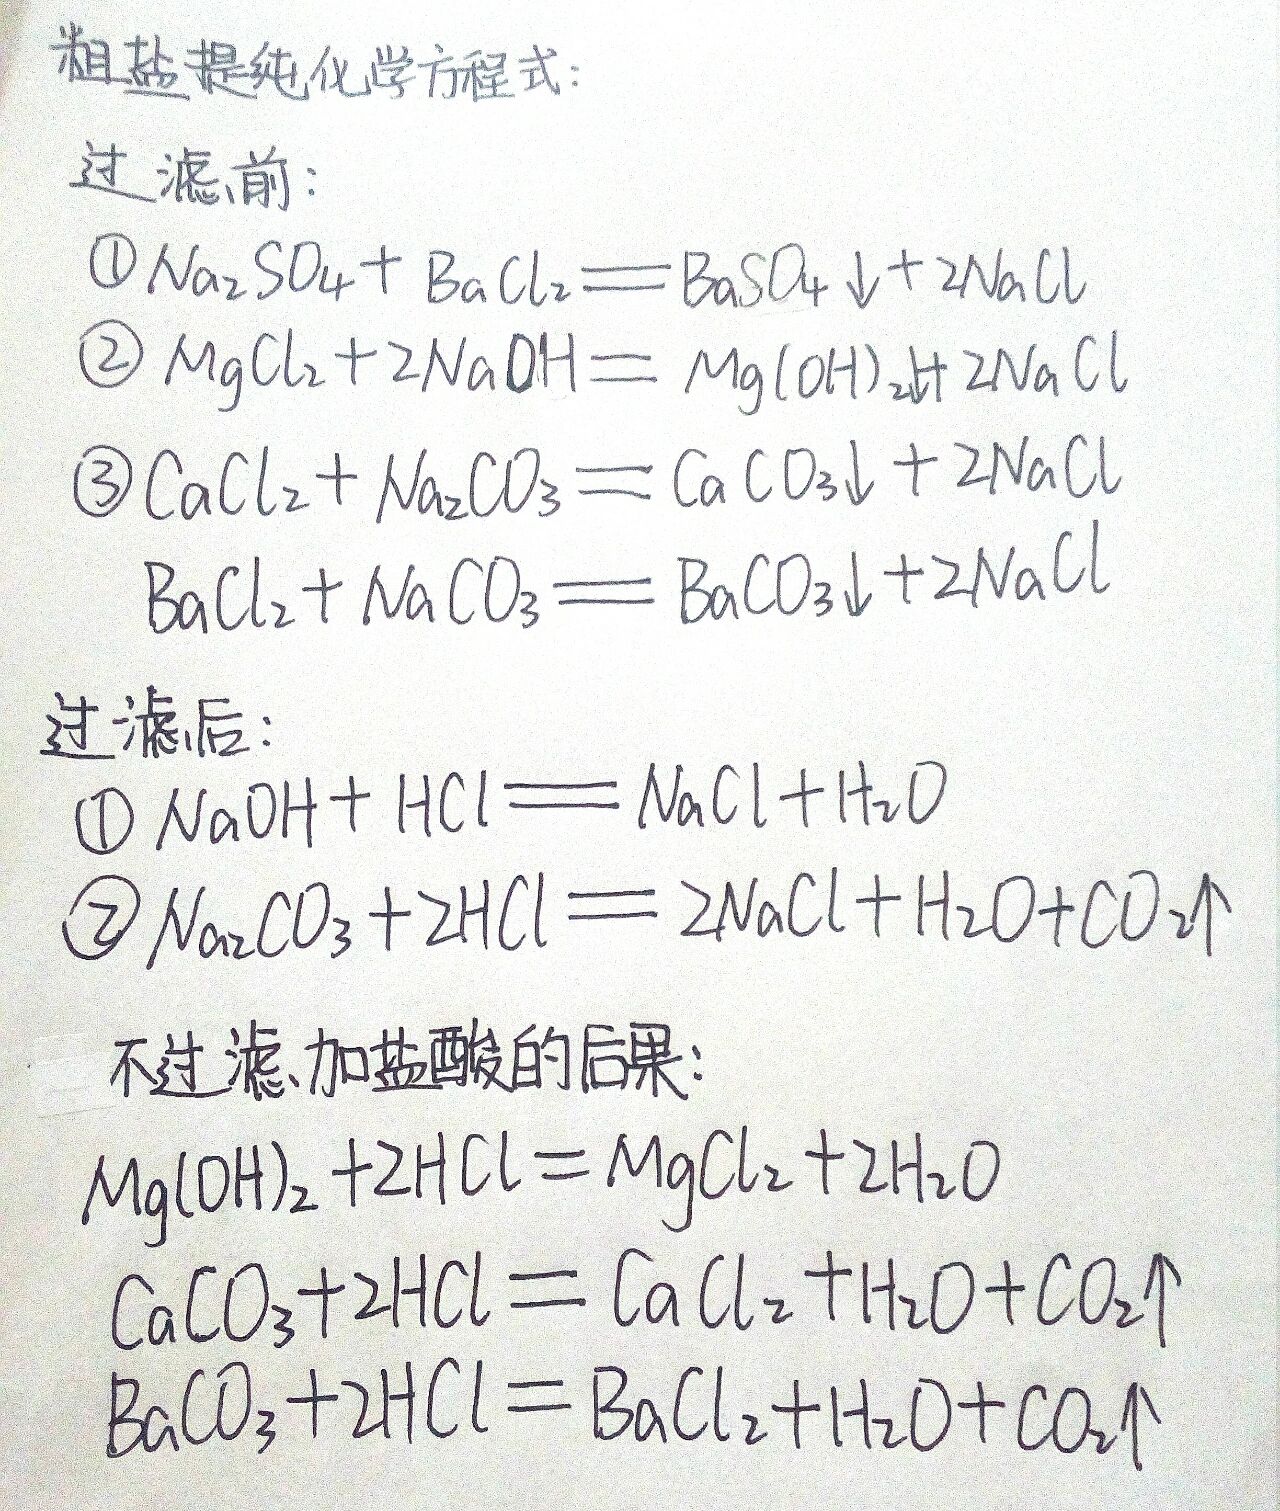 粗盐提纯化学方程式:
过滤前:
①Na₂SO₄+BaCl₂=BaSO₄↓+2NaCl
②MgCl₂+2NaOH=Mg(OH)₂↓+2NaCl
③CaCl₂+Na₂CO₃=CaCO₃↓+2NaCl
BaCl₂+NaCO₃=BaCO₃↓+2NaCl
过滤后:
①NaOH+HCl=NaCl+H₂O
②Na₂CO₃+2HCl=2NaCl+H₂O+CO₂↑
不过滤、加盐酸的后果:
Mg(OH)₂+2HCl=MgCl₂+2H₂O
CaCO₃+2HCl=CaCl₂+H₂O+CO₂↑
BaCO₃+2HCl=BaCl₂+H₂O+CO₂↑